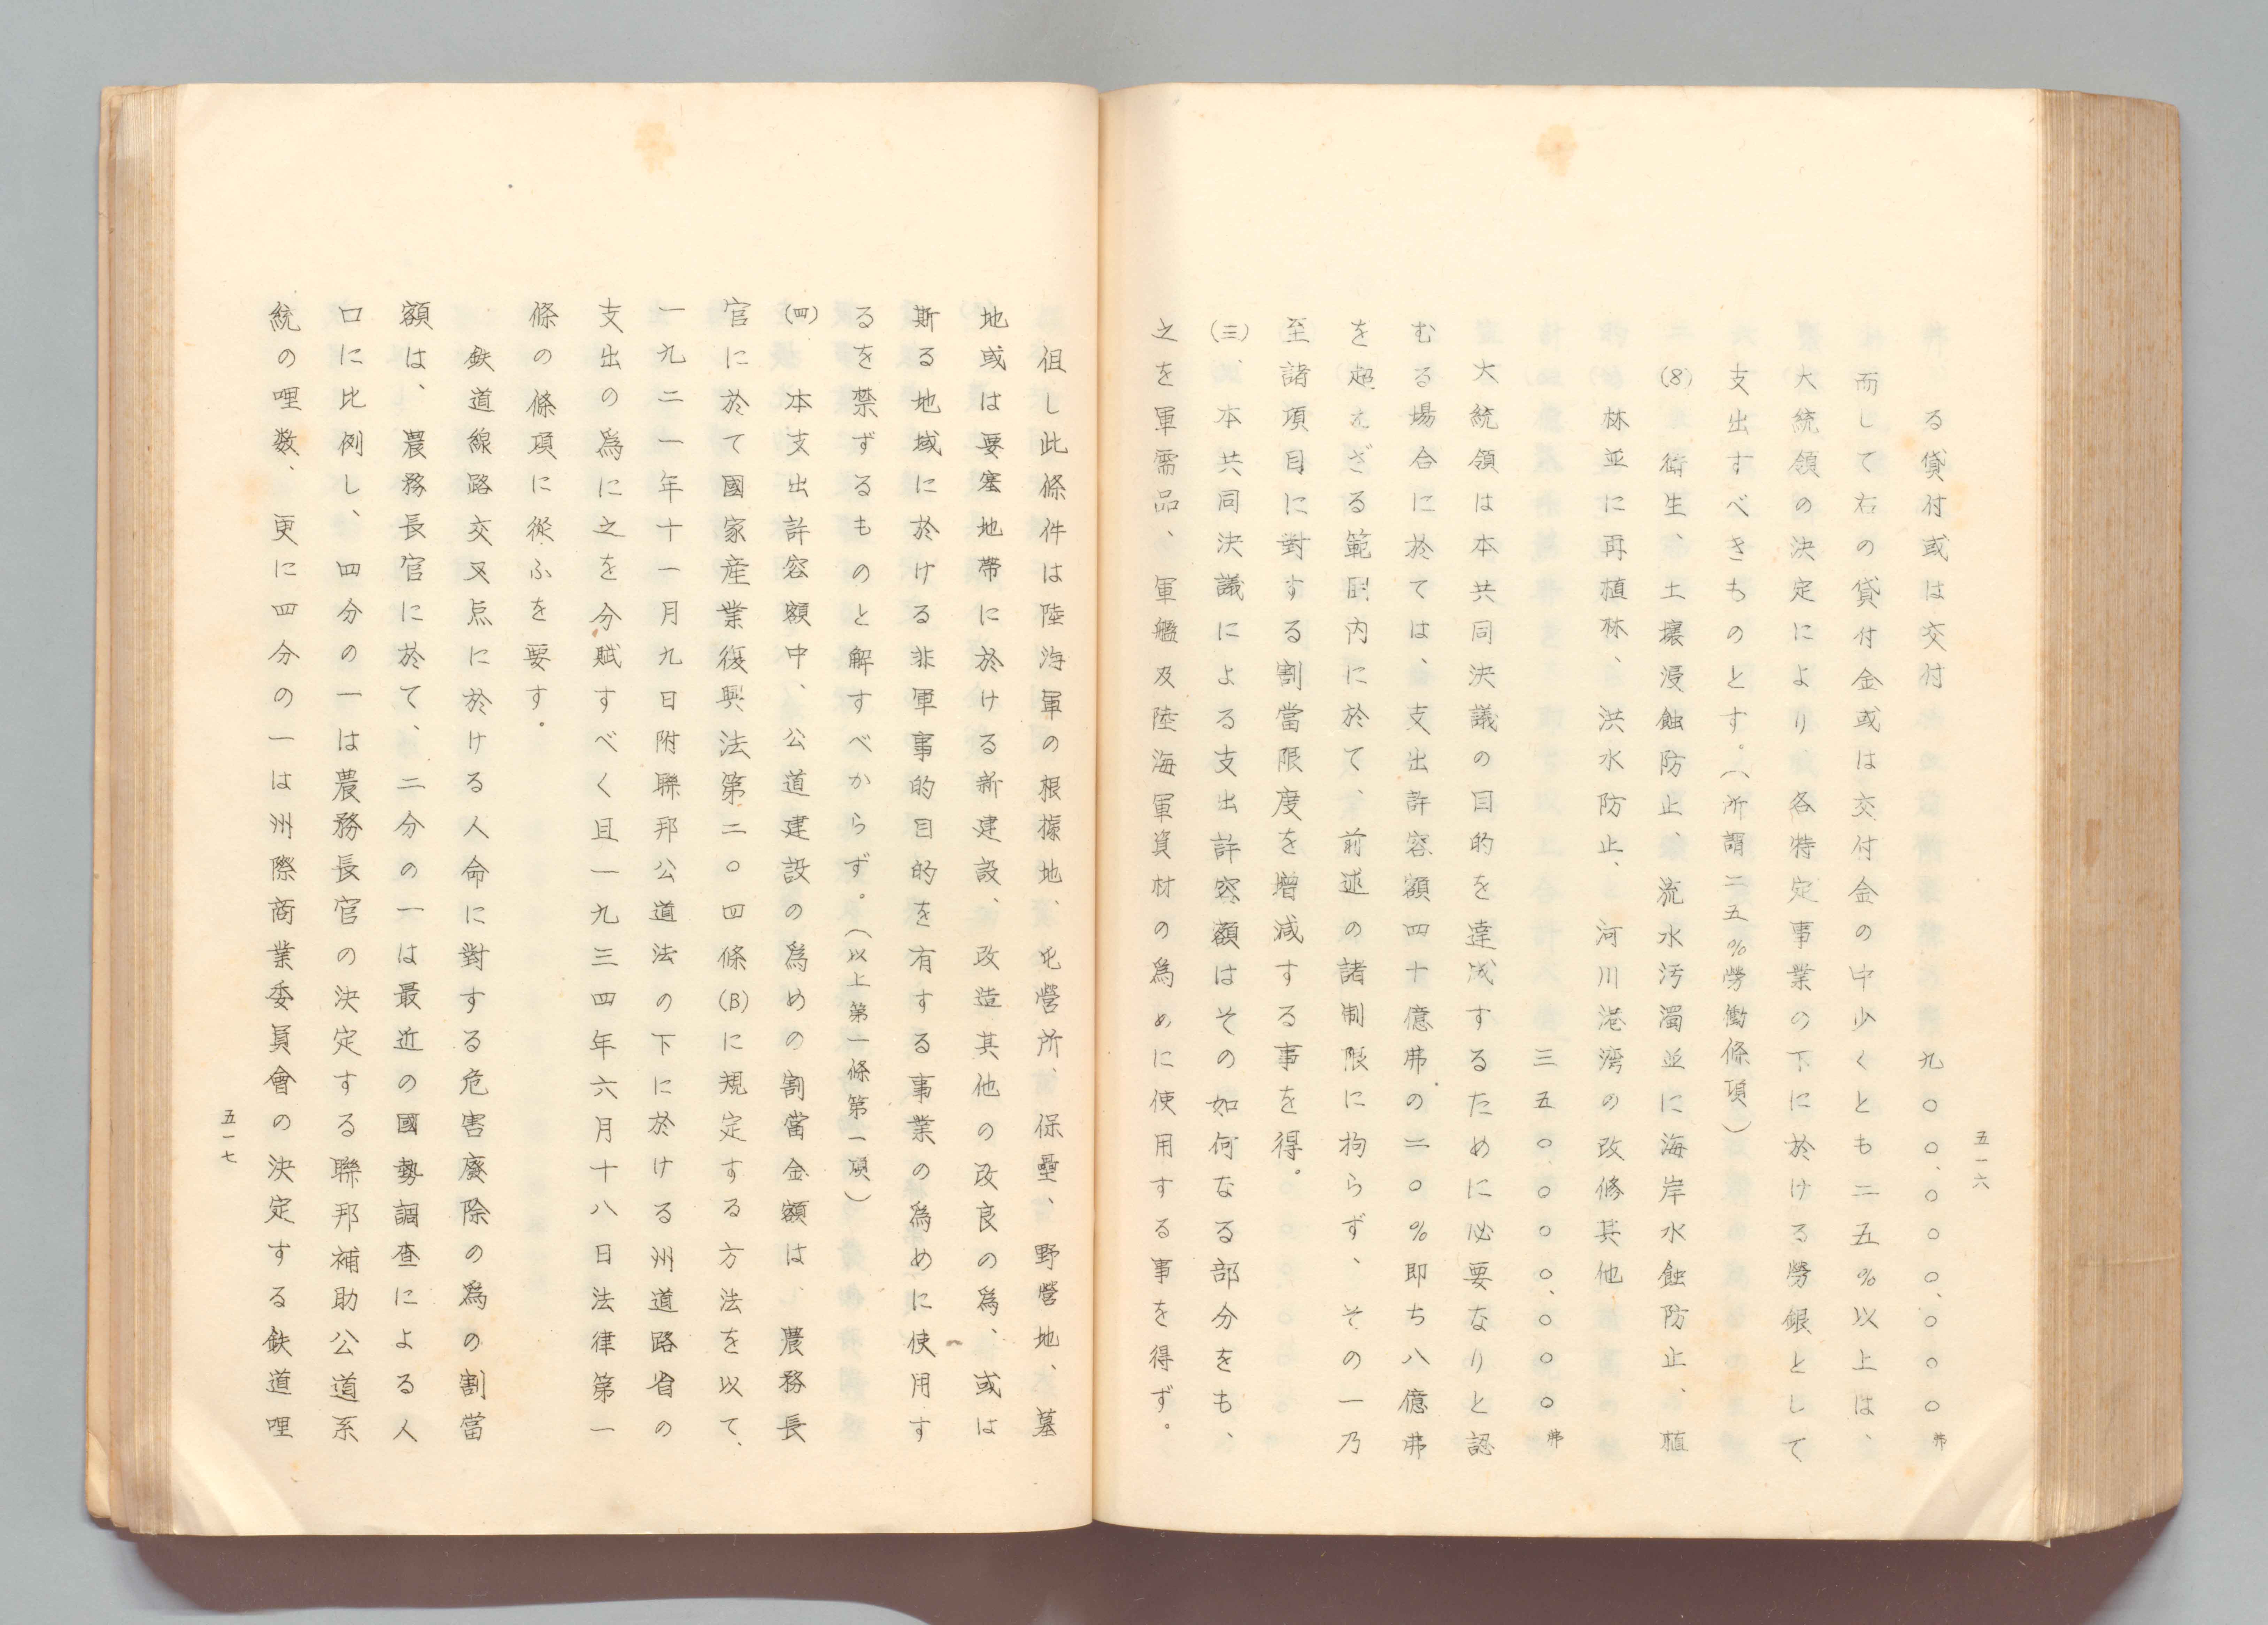 五一六
る貸付或は交付　九〇〇、〇〇〇、〇〇〇弗
而して右の貸付金或は交付金の中少くとも二五％以上は、
大統領の決定により各特定事業の下に於ける勞銀として
支出すべきものとす。（所謂二五％勞働條項）
(8)　衛生、土壤浸蝕防止、流水汚濁並に海岸水蝕防止、植
林並に再植林、洪水防止、河川港湾の改修其他
三五〇、〇〇〇、〇〇〇弗
大統領は本共同決議の目的を達成するために必要なりと認
むる場合に於ては、支出許容額四十億弗の二〇％即ち八億弗
を超えざる範囲内に於て、前述の諸制限に拘らず、その一乃
至諸項目に對する割當限度を増減する事を得。
(三)、本共同決議による支出許容額はその如何なる部分をも、
之を軍需品、軍艦及陸海軍資材の爲めに使用する事を得ず。
但し此條件は陸海軍の根據地、屯營所、保壘、野營地、墓
地或は要塞地帶に於ける新建設、改造其他の改良の爲、或は
斯る地域に於ける非軍事的目的を有する事業の爲めに使用す
るを禁ずるものと解すべからず。（以上第一條第一項）
(四)　本支出許容額中、公道建設の爲めの割當金額は、農務長
官に於て國家産業復興法第二〇四條(B)に規定する方法を以て、
一九二一年十一月九日附聯邦公道法の下に於ける州道路省の
支出の爲に之を分賦すべく且一九三四年六月十八日法律第一
條の條項に從ふを要す。
鉄道線路交叉点に於ける人命に對する危害廢除の爲の割當
額は、農務長官に於て、二分の一は最近の國勢調査による人
口に比例し、四分の一は農務長官の決定する聯邦補助公道系
統の哩数、更に四分の一は州際商業委員會の決定する鉄道哩
五一七